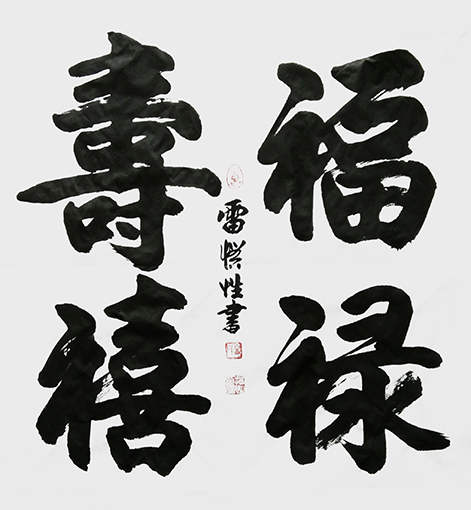 福禄
壽禧
雷性書